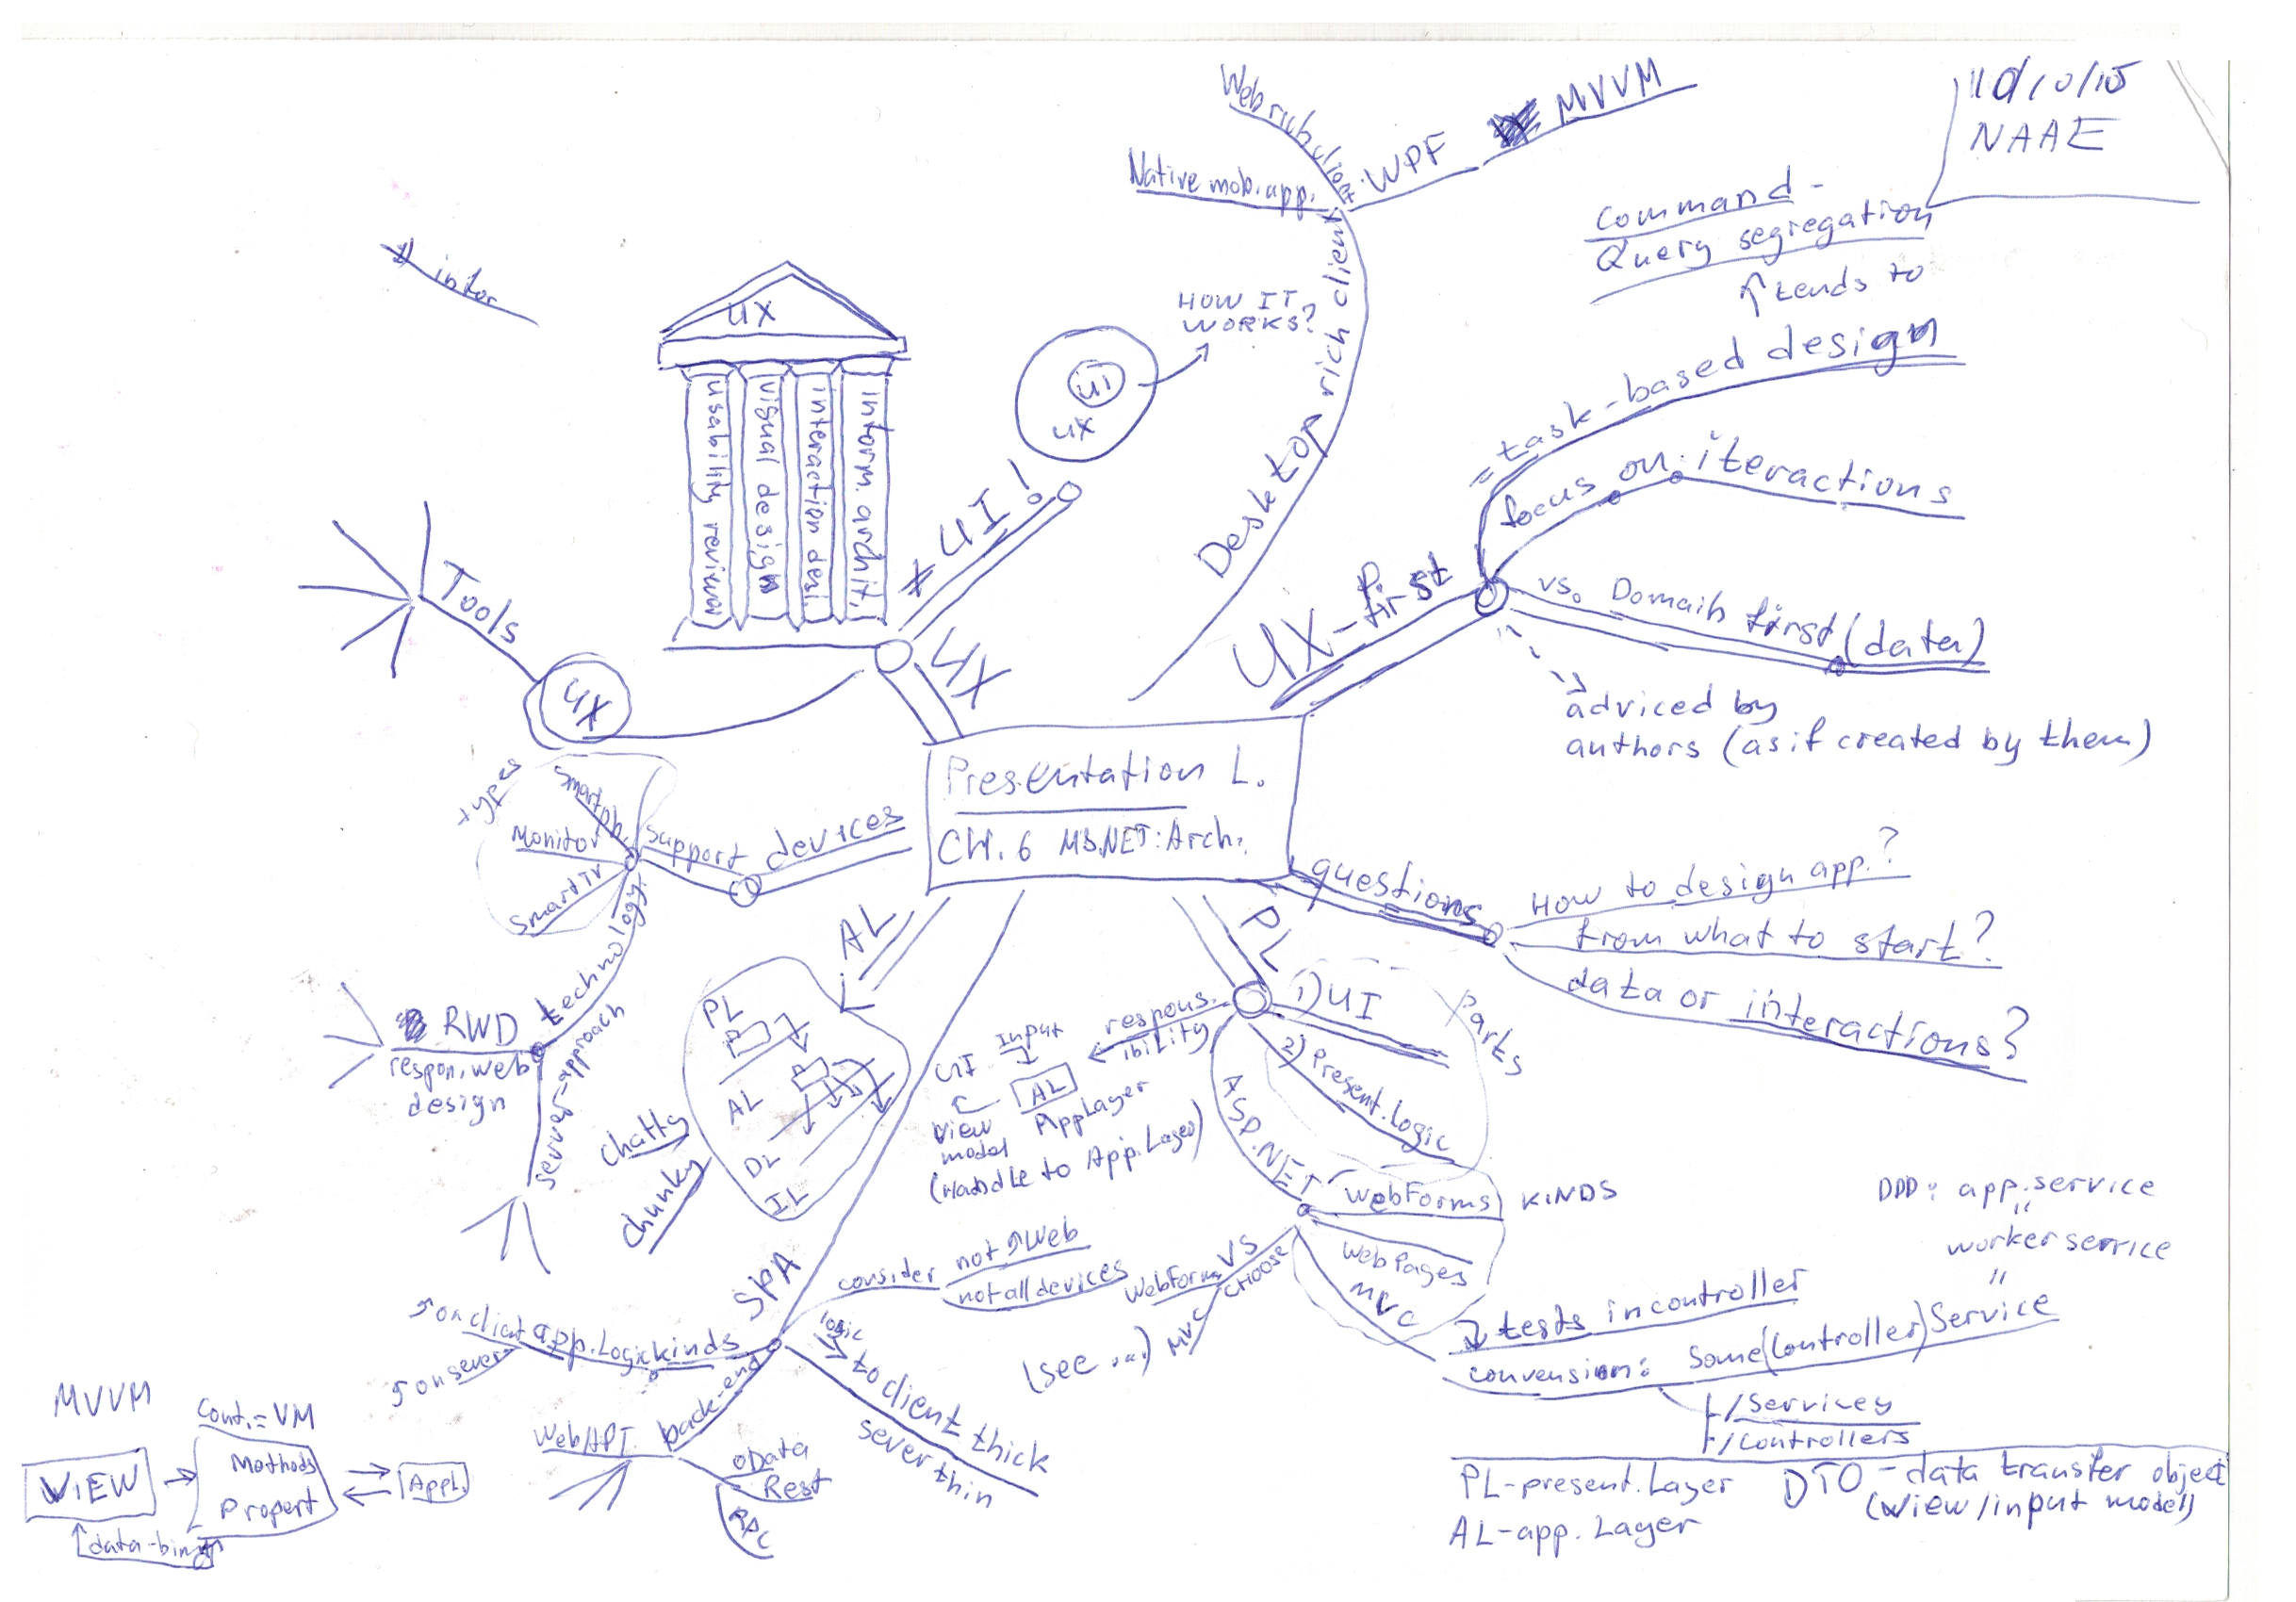 NAAE
Web rich client
Native mob. app.
WPF
MVVM
Desktop rich client
Command-
Query segregation
↑ tends to
= task-based design
focus on iteractions
UX-first
vs. Domain first (data)
adviced by
authors (as if created by them)
UX
usability review
visual design
interaction desi.
inform. archit.
HOW IT
WORKS?
UI
UX
≠ UI!
UX
Tools
UX
Presentation L.
CH. 6 MS.NET: Arch.
devices
support
types
Smartph.
Monitor
SmartTV
technology
RWD
respon. web
design
server-approach
questions
How to design app.?
from what to start?
data or interactions?
AL
PL
AL
DL
IL
Chatty
Chunky
PL
1) UI
2) Present. Logic
Parts
respons-
ibility
Input
UI
AL
App Layer
View
model
(Handle to App. Layer)
ASP.NET
WebForms
KINDS
WebPages
MVC
VS
CHOOSE
WebForms
MVC
(see ...)
DDD: app. service
"
worker service
"
↓ tests in controller
convension: Some(Controller)Service
/Services
/Controllers
SPA
consider
not ↑ Web
not all devices
app. Logic kinds
on client
on sever
logic
to client thick
sever thin
back-end
WebAPI
oData
Rest
RPC
MVVM
Cont. = VM
VIEW
Methods
Propert
Appl.
data-bing
PL-present. Layer
AL-app. Layer
DTO - data transfer object
(view/input model)